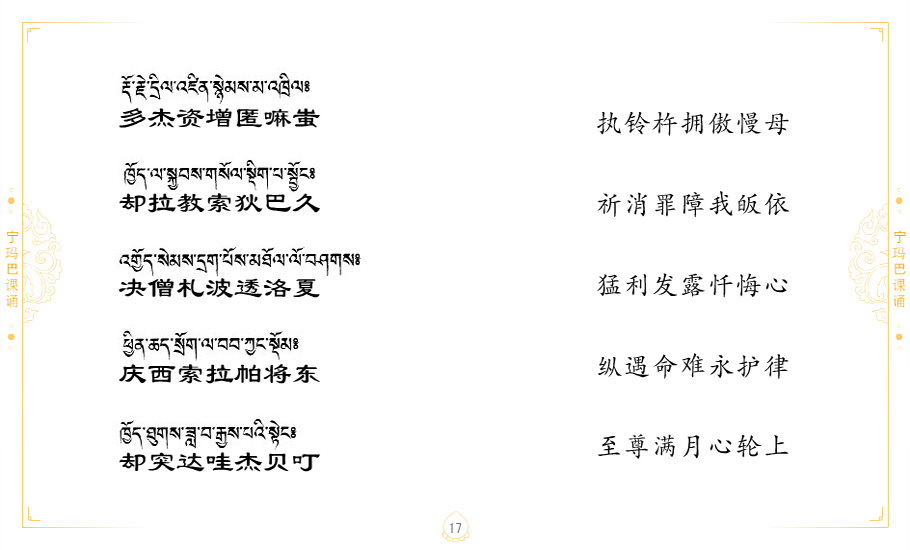 རྡོ་རྗེ་དྲིལ་འཛིན་སྙེམས་མ་འཁྲིལ༔
多杰资增匿嘛蚩
执铃杵拥傲慢母
ཁྱོད་ལ་སྐྱབས་གསོལ་སྡིག་པ་སྦྱོང༔
却拉教索狄巴久
祈消罪障我皈依
འགྱོད་སེམས་དྲག་པོས་མཐོལ་ལོ་བཤགས༔
决僧札波透洛夏
猛利发露忏悔心
ཕྱིན་ཆད་སྲོག་ལ་བབ་ཀྱང་སྡོམ༔
庆西索拉帕将东
纵遇命难永护律
ཁྱོད་ཐུགས་ཟླ་བ་རྒྱས་པའི་སྟེང༔
却突达哇杰贝叮
至尊满月心轮上
宁玛巴课诵
宁玛巴课诵
17